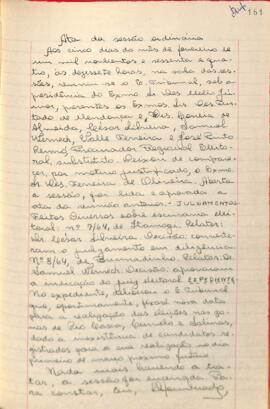 151
Ata da sessão ordinária
Aos cinco dias do mês de fevereiro de
um mil novecentos e sessenta e qua-
tro, às dezessete horas, na sala das ses-
sões, reuniu-se o E. Tribunal, sob a
presidência do Exmo. Sr. Des. Mello Jú-
nior, presentes os Exmos. Srs. Des. Fur-
tado de Mendonça e Drs. Corrêa de
Almeida, César Silveira, Samuel
Werneck, Valle Ferreira e José Pinto
Renno, Procurador Regional Elei-
toral, substituto. Deixou de compare-
cer, por motivo justificado, o Exmo.
Sr. Des. Ferreira de Oliveira. Aberta
a sessão, foi lida e aprovada a
ata da reunião anterior. JULGAMENTOS
Feitos Diversos sobre escrivania elei-
toral nº 7/64, de Itamogi. Relator:
Dr. César Silveira. Decisão: converte-
ram o julgamento em diligência
Nº 8/64, de Brumadinho. Relator: Dr.
Samuel Werneck. Decisão: aprovaram
a indicação do juiz eleitoral. EXPEDIENTE
No expediente, deliberou o E. Tribunal
que, oportunamente, fixará nova data
para a realização das eleições nos
de Rio Casca, e Salinas,
dada a inexistência de candidatos re-
gistrados para a sua realização no dia
primeiro de março próximo futuro
Nada mais havendo a tra-
tar, a sessão foi encerrada. Pa-
ra constar, eu,